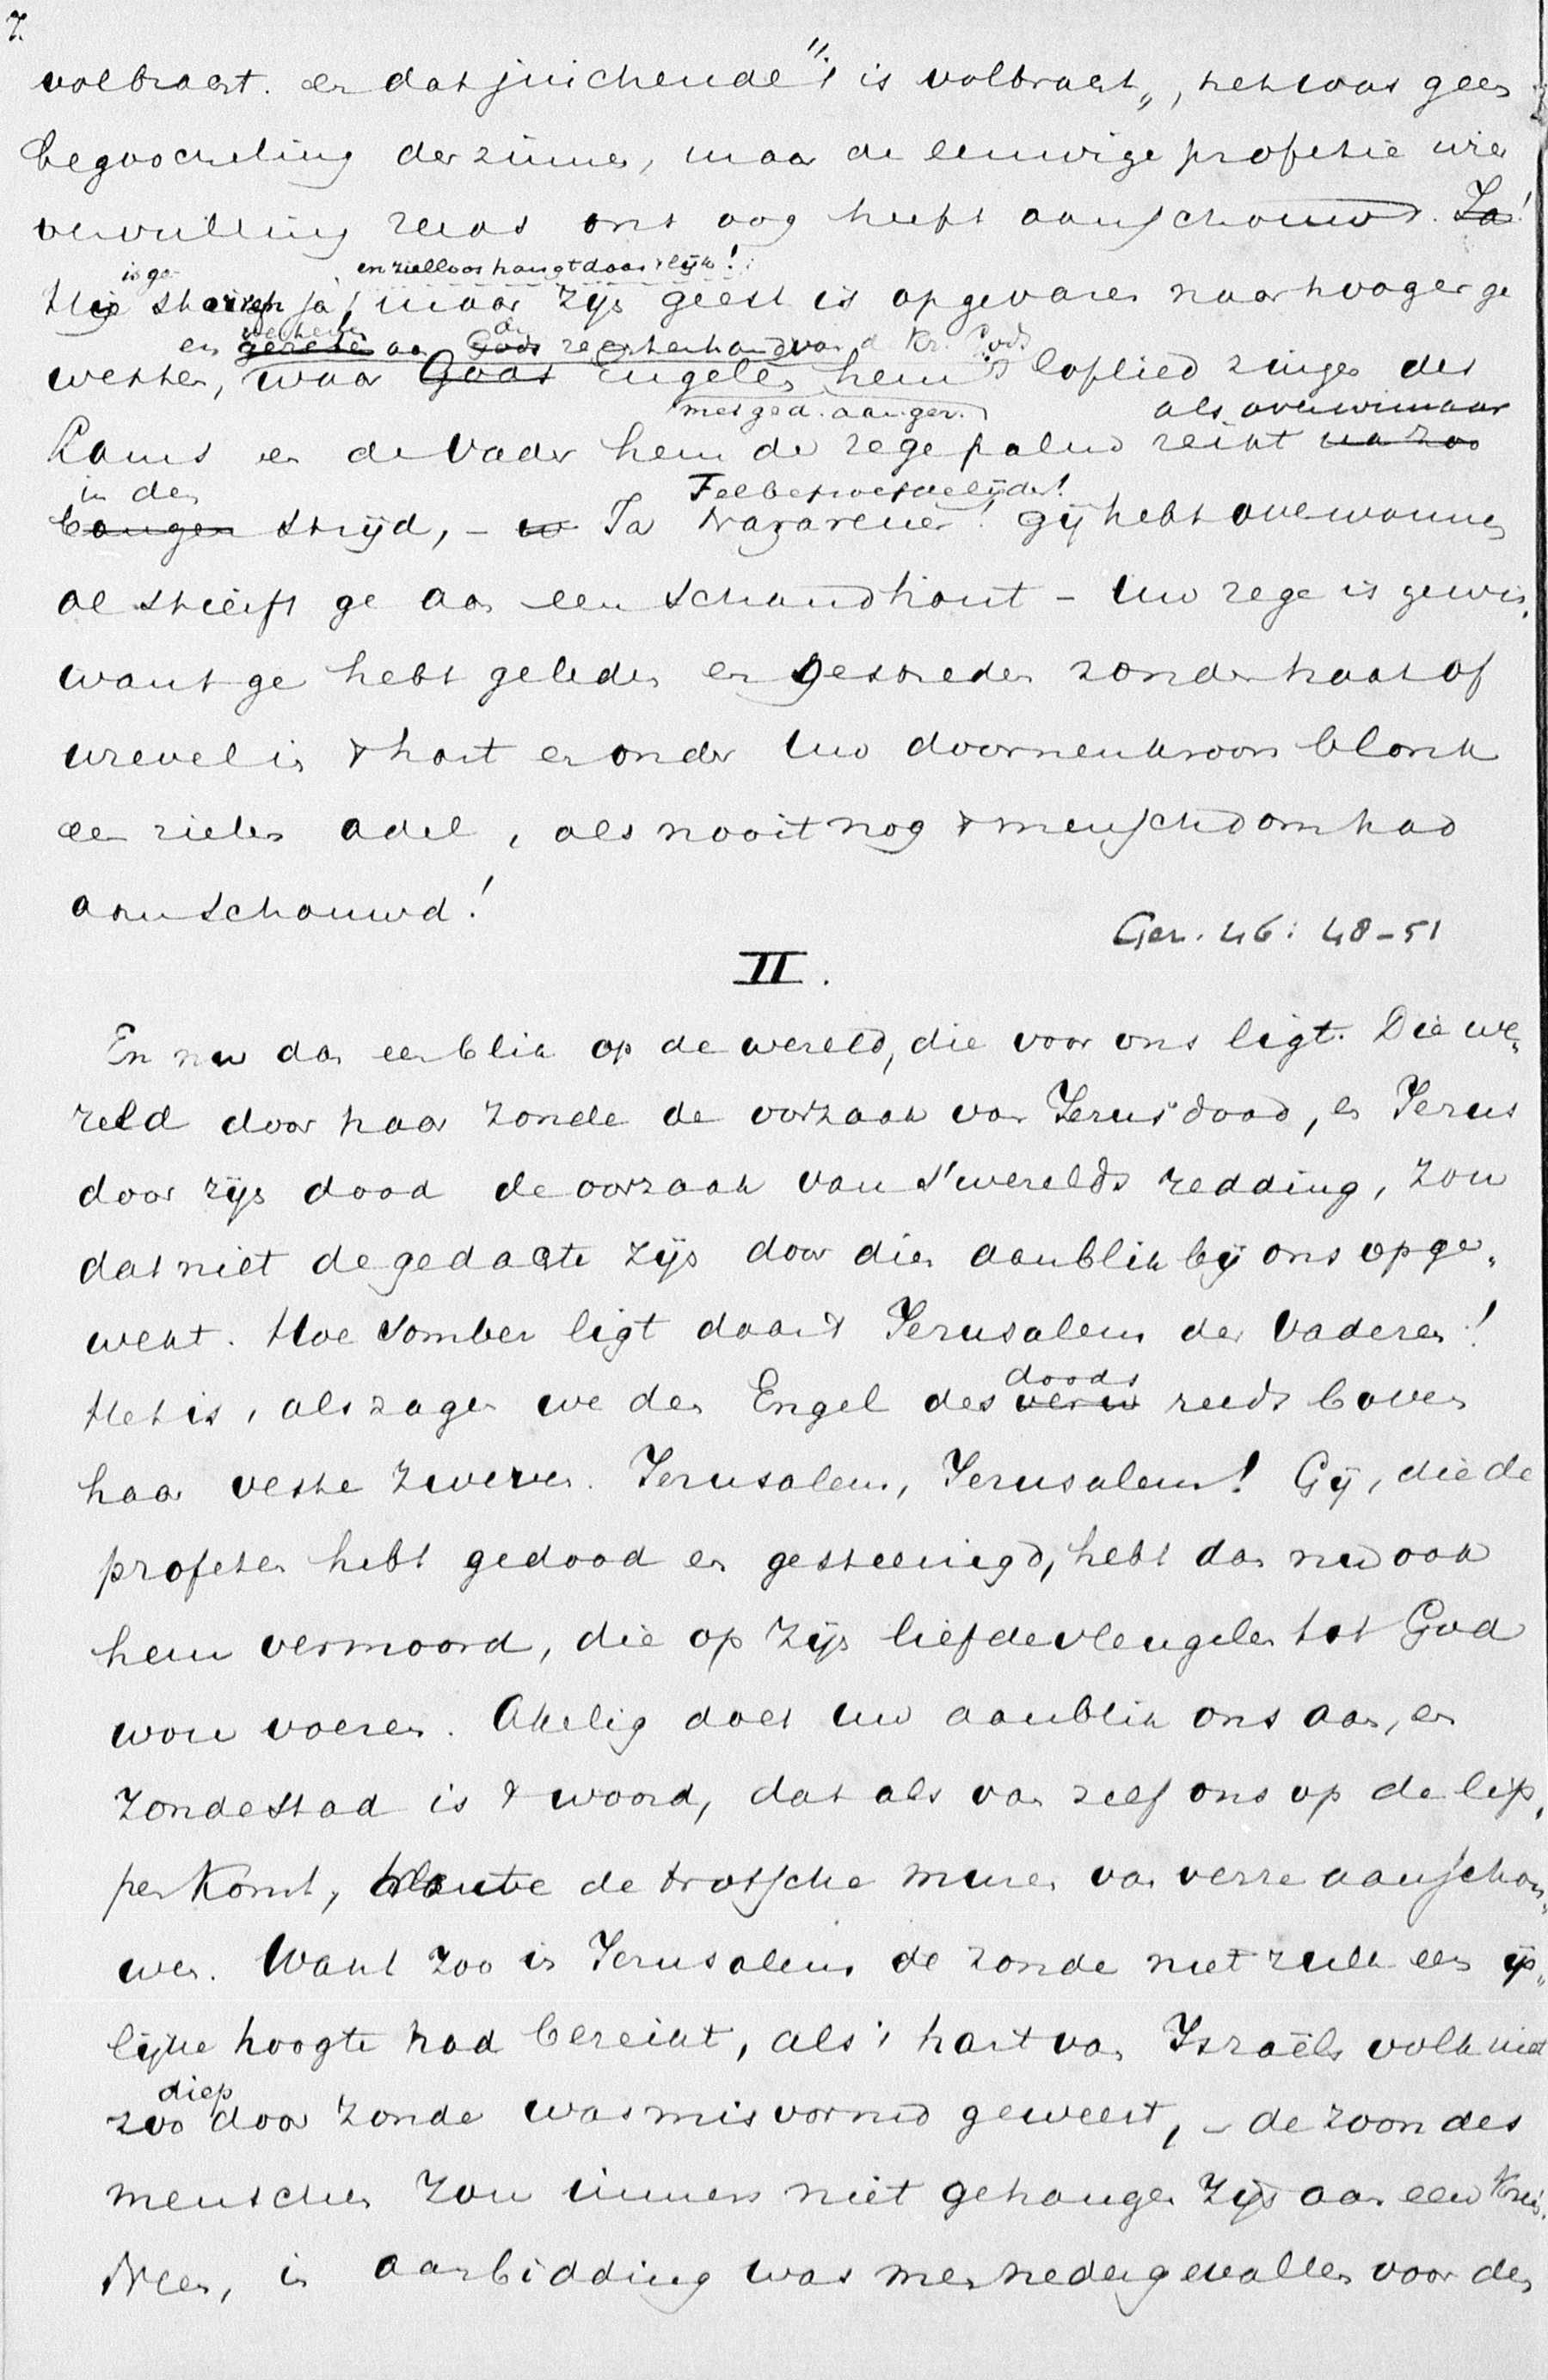 7.
volbracht. en dat juichende "'t is volbracht", het was geen
begoocheling der zinnen, maar de eeuwige profetie wier
vervulling reeds ons oog heeft aanschouwd. Ja!
is ge- en zielloos hangt daar 't lijk!
Hij stierf ja, maar zijn geest is opgevaren naar hooger ge
en gezeten aan Gods rechterhand van d Kr. Gods
westen, waar Gods Engelen hem 't loflied zingen des
met ged. aanger. als overwinnaar
Lams en de Vader hem de zegepalm reikt na zoo
in den Felbestreden lijder!
bangen strijd, - Ja Nazarener! gij hebt overwonnen
al stierft ge aan een schandhout - Uw zege is gewis,
want ge hebt geleden en gestreden zonder haat of
wrevel in 't hart en onder Uw doornenkroon blonk
een zielen adel, als nooit nog 't menschdom had
aanschouwd!
Gez. 46: 48-51
II.
En nu dan een blik op de wereld, die voor ons ligt. Die we-
reld door haar zonde de oorzaak van Jezus' dood, en Jezus
door zijn dood de oorzaak van 's werelds redding, zou
dat niet de gedachte zijn door dien aanblik bij ons opge-
wekt. Hoe somber ligt daar 't Jerusalem der Vaderen!
doods
Het is, als zagen we den Engel des verw reeds boven
haar veste zweven. Jerusalem, Jerusalem! Gij, die de
profeten hebt gedood en gesteenigd, hebt dan nu ook
hem vermoord, die op zijn liefdevleugelen tot God
wou voeren. Akelig doet uw aanblik ons aan, en
zondestad is 't woord, dat als van zelf ons op de lip-
pen komt, de trotsche muren van verre aanschou-
wen. Want zoo in Jerusalem de zonde niet zulk een ijs-
lijke hoogte had bereikt, als 't hart van Israëls volk niet
diep
zoo door zonde was misvormd geweest, - de zoon des
menschen zou immers niet gehangen zijn aan een kruis.
Neen, in aanbidding was men nedergevallen voor den